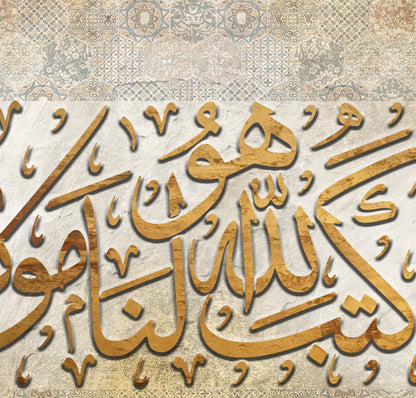 كتب الله لنا هو مو